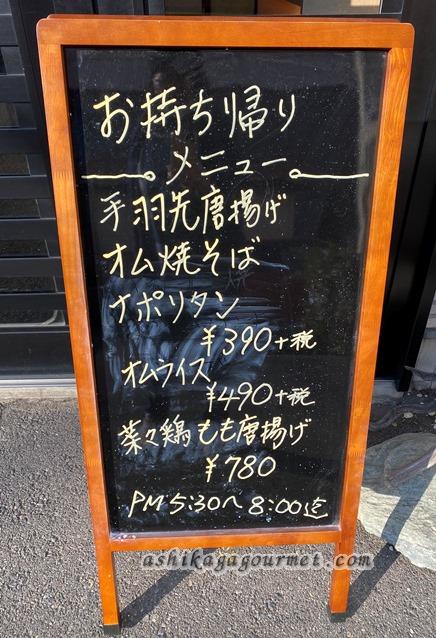 お持ち帰り
メニュー
手羽先唐揚げ
オム焼そば
ナポリタン
¥390+税
オムライス
¥490+税
菜々鶏もも唐揚げ
¥780
PM 5:30〜8:00迄
ashikagagourmet.com